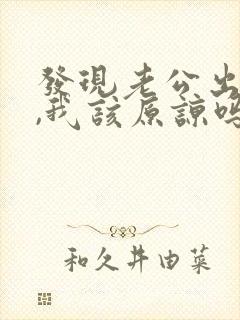 發現老公出
,我該原諒嗎
和久井由菜